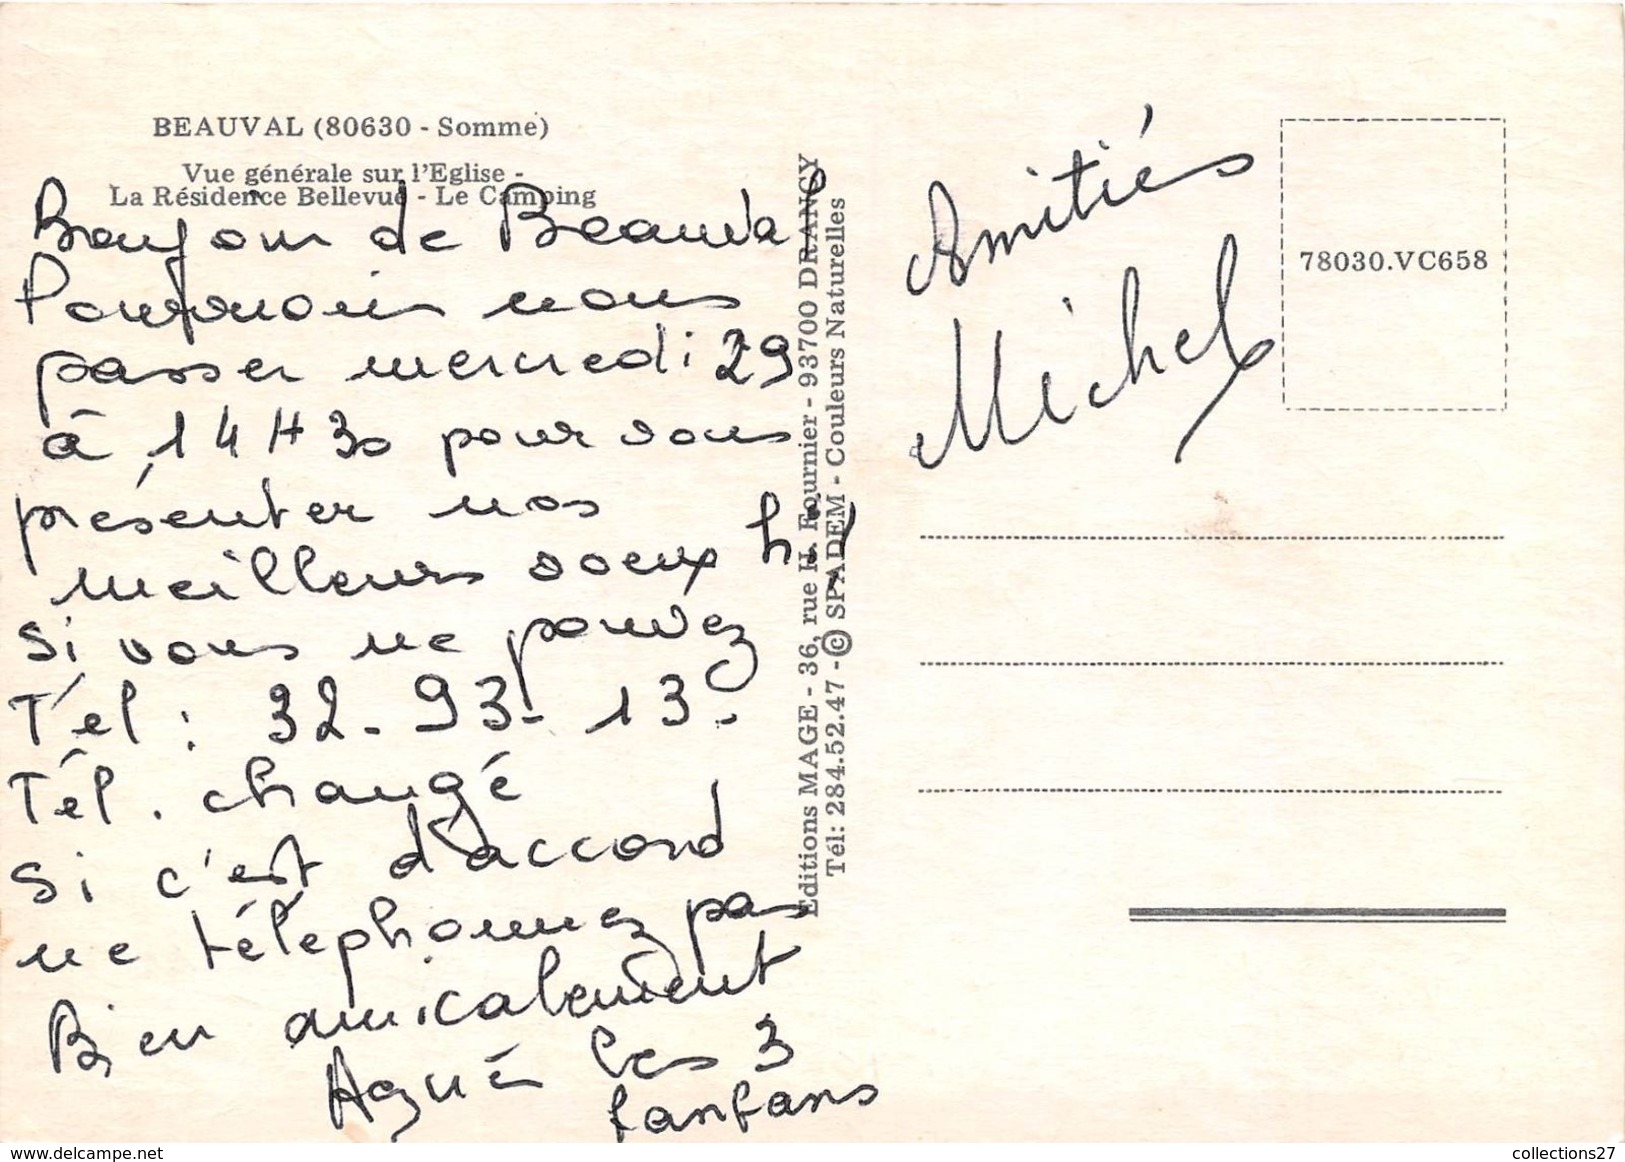 BEAUVAL (80630 - Somme)
Vue générale sur l'Eglise -
La Résidence Bellevue - Le Camping
Bonjour de Beauval
Pourrions nous
passer mercredi 29
à 14 H 30 pour vous
présenter nos
meilleurs voeux
Si vous ne pouvez
Tél : 32 - 93 - 13 -
Tél. changé
Si c'est d'accord
ne téléphonez pas
Bien amicalement
Agnés les 3
fanfans
Editions MAGE - 36, rue H. Fournier - 93700 DRANCY
Tél: 284.52.47 - © SPADEM - Couleurs Naturelles
Amitiés
Michel
78030.VC658
www.delcampe.net
collections27